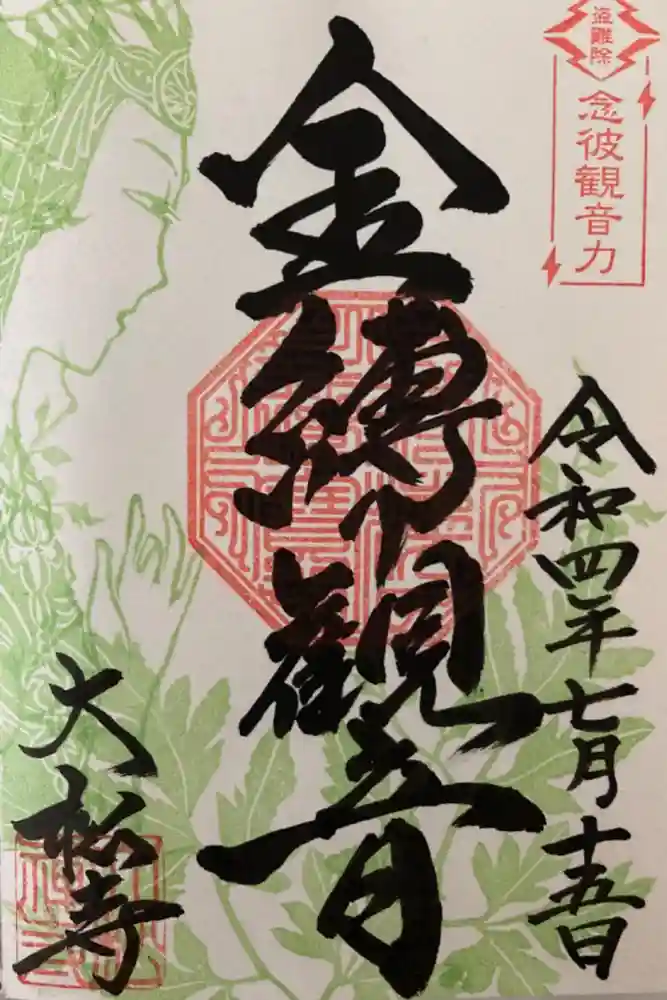 盗難除
念彼観音力
令和四年七月十五日
金縛り観音
大松寺